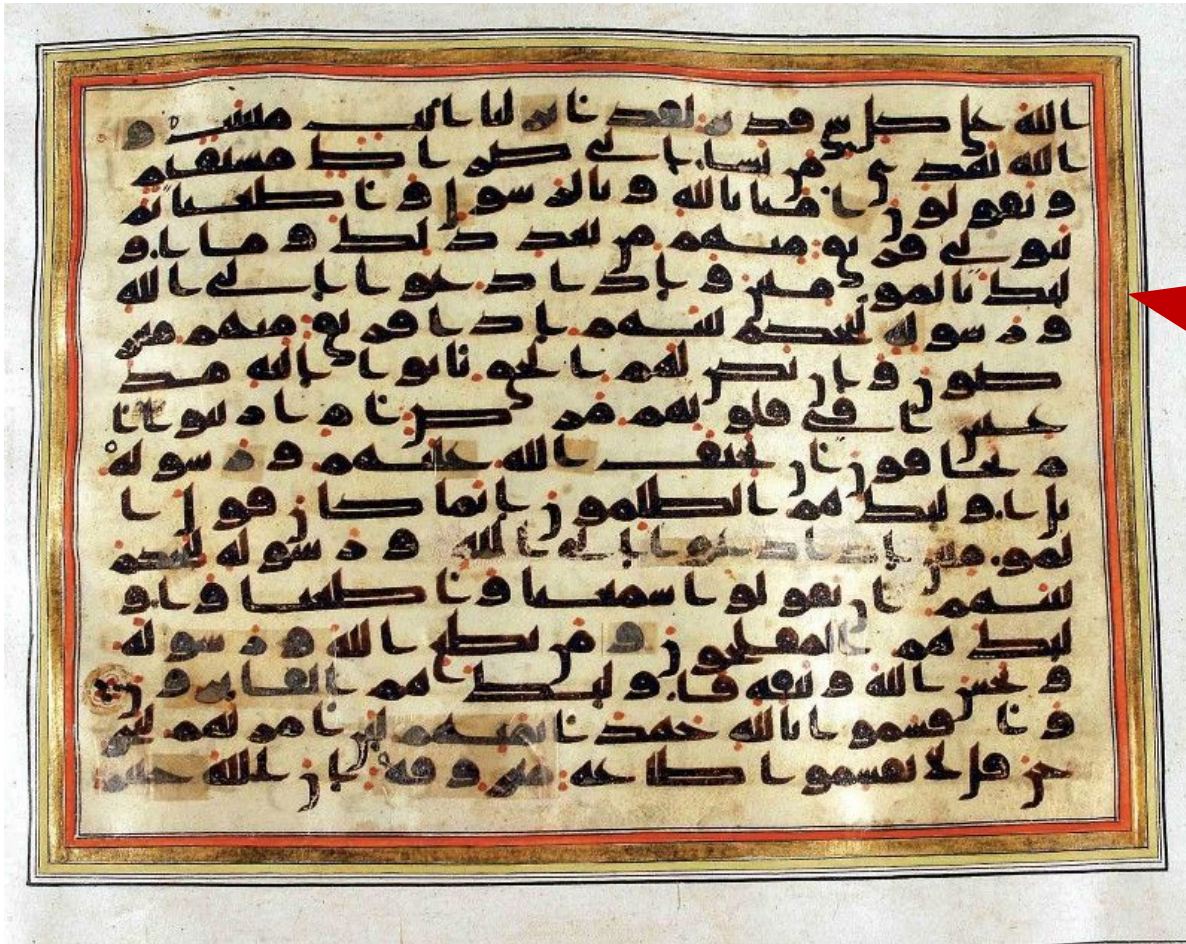 الله على كل شي قدير لقد انزلنا ايت مبينت و
الله يهدي من يشا الى صرط مستقيم
و يقولون امنا بالله و بالرسول و اطعنا ثم
يتولى فريق منهم من بعد ذلك و ما او
لئك بالمومنين و اذا دعوا الى الله
و رسوله ليحكم بينهم اذا فريق منهم معر
ضون و ان يكن لهم الحق ياتوا اليه مذ
عنين افي قلوبهم مرض ام ارتابوا ا
م يخافون ان يحيف الله عليهم و رسوله
بل اولئك هم الظلمون انما كان قول ا
لمومنين اذا دعوا الى الله و رسوله ليحكم
بينهم ان يقولوا سمعنا و اطعنا و او
لئك هم المفلحون و من يطع الله و رسوله
و يخش الله و يتقه فاولئك هم الفايزون
و اقسموا بالله جهد ايمنهم لئن امرتهم ليخر
جن قل لا تقسموا طاعه معروفه ان الله خبير